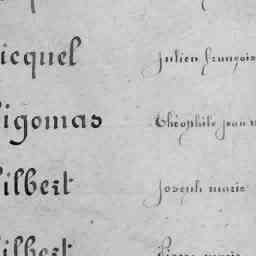 icquel Julien françois
igomas théophile jean m
ilbert Joseph marie
ilbert Pierre marie